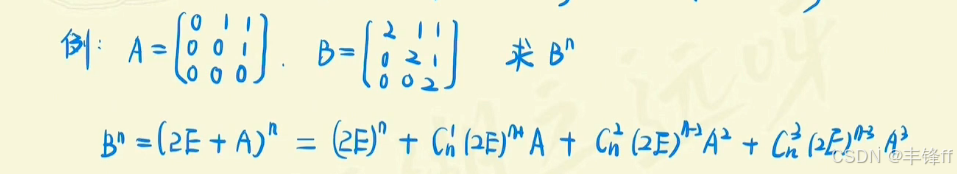 例: A = [0 1 1; 0 0 1; 0 0 0]. B = [2 1 1; 0 2 1; 0 0 2] 求 Bⁿ
Bⁿ = (2E + A)ⁿ = (2E)ⁿ + Cₙ¹ (2E)ⁿ⁻¹ A + Cₙ² (2E)ⁿ⁻² A² + Cₙ³ (2E)ⁿ⁻³ A³
CSDN @丰锋ff